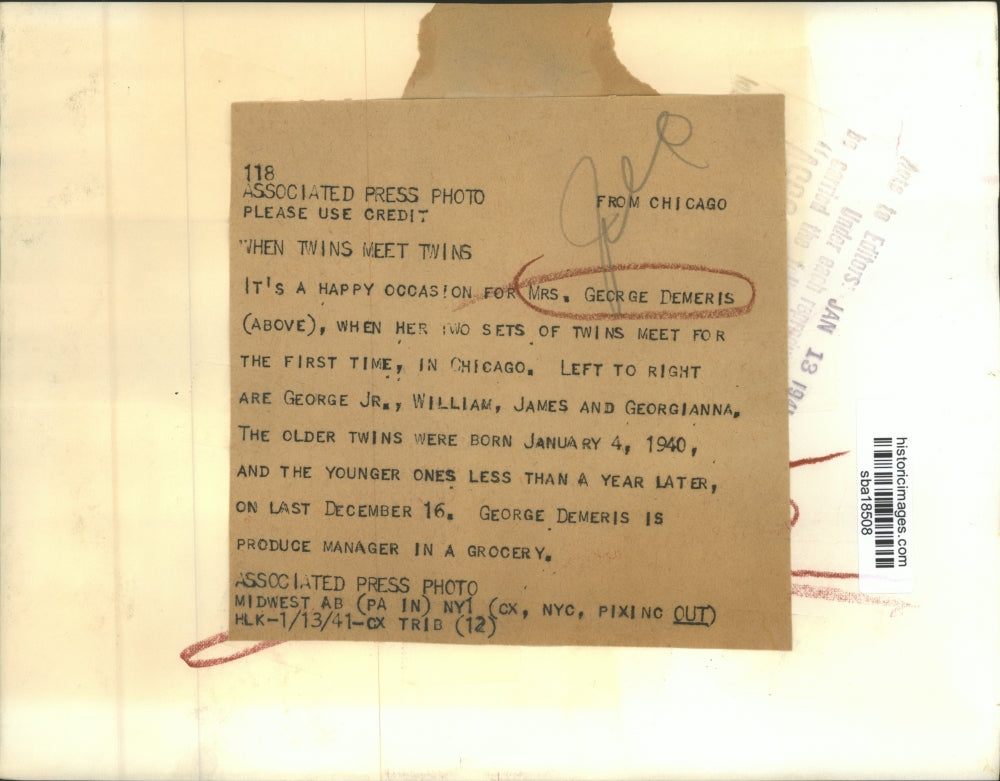 118
ASSOCIATED PRESS PHOTO
PLEASE USE CREDIT
FROM CHICAGO
WHEN TWINS MEET TWINS
IT'S A HAPPY OCCASION FOR MRS. GEORGE DEMERIS
(ABOVE), WHEN HER TWO SETS OF TWINS MEET FOR
THE FIRST TIME, IN CHICAGO. LEFT TO RIGHT
ARE GEORGE JR., WILLIAM, JAMES AND GEORGIANNA.
THE OLDER TWINS WERE BORN JANUARY 4, 1940,
AND THE YOUNGER ONES LESS THAN A YEAR LATER,
ON LAST DECEMBER 16. GEORGE DEMERIS IS
PRODUCE MANAGER IN A GROCERY.
ASSOCIATED PRESS PHOTO
MIDWEST AB (PA IN) NY1 (CX, NYC, PIXINC OUT)
HLK-1/13/41-CX TRIB (12)
Note to Editors:
JAN 13 1941
historicimages.com
sba18508